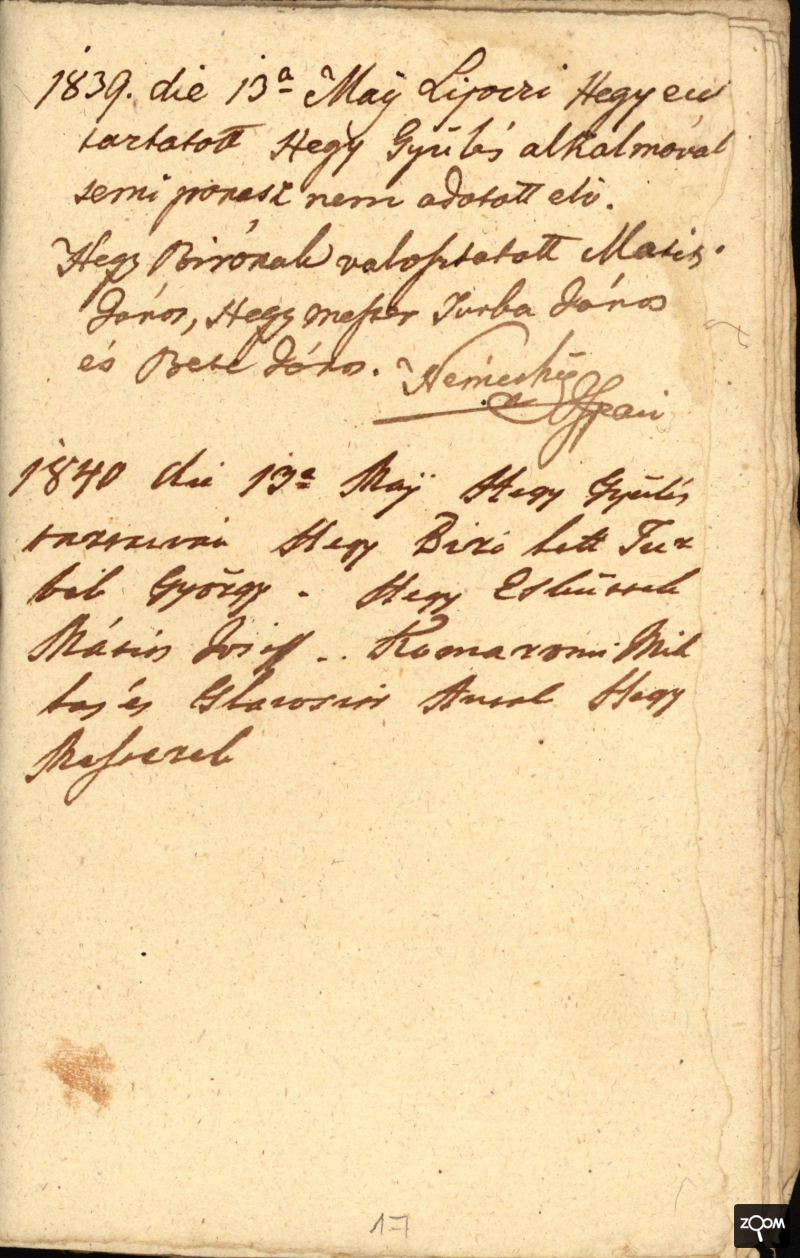 1839. die 13a Maÿ Lipoczi Hegyen
tartatott Hegy Gyülés alkalmával
semi panasz nem adatott elö.
Hegy Birónak valosztatott Matis
János, Hegy mester Turba János
és Bese János. Nemeshÿ
Ispán
1840 die 13a Maÿ Hegy Gyülés
tartatván Hegy Biró lett Tur
bék György. Hegy Esküttek
Mátis Josef .. Komaromi Mik
los és Antal Hegy
Mesterek
17
ZOOM